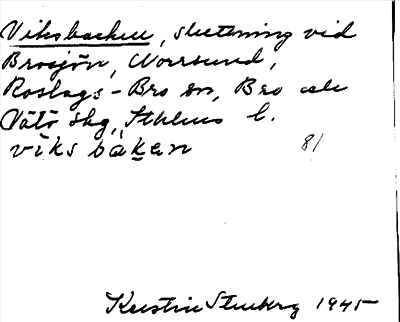 Viksbacken, sluttning vid
Brosjön, Norrsund,
Roslags-Bro sn, Bro och
Vätö skg, Sthlms l.
viks baken 81
Kerstin Stenberg 1945